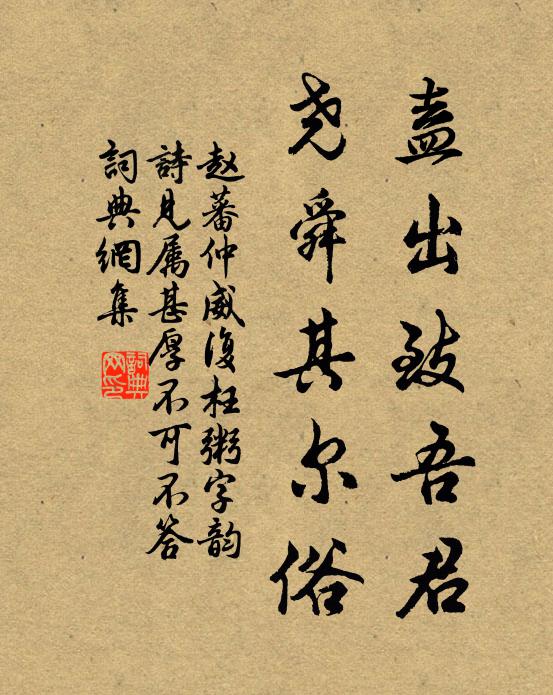 盍出致吾君
尧舜其尔俗
赵蕃仲威復枉粥字韵
詩見属甚厚不可不答
詞典網集
詞典網印